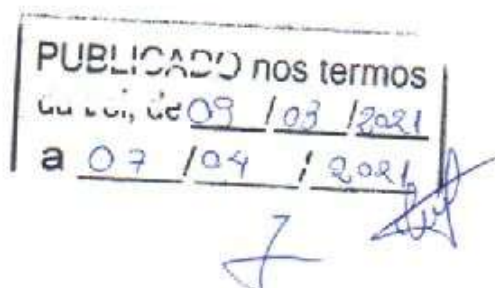 PUBLICADO nos termos
da Lei, de 09 / 03 / 2021
a 07 / 04 / 2021